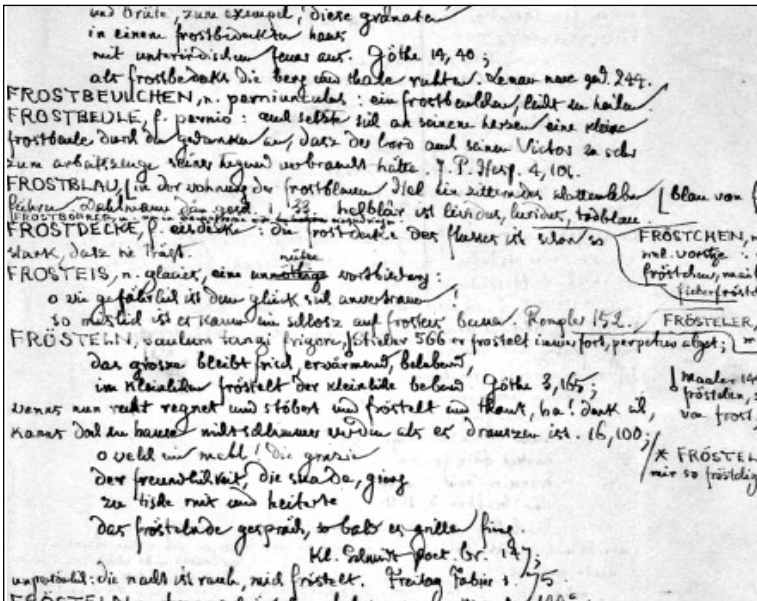 und brüte, zum exempel, diese granaten
in einem frostbedeckten haus
mit unterirdischem feuer aus. Göthe 14, 40;
als frostbedeckt die berg und thale ruhten. Lenau neue ged. 244.
FROSTBEULCHEN, n. perniunculus: ein frostbeulchen, leicht zu heilen
FROSTBEULE, f. pernio: und setzte sich an seinem herzen eine kleine
frostbeule durch den gedanken an, dasz der lord und seinen Victor zu sehr
zum arbeitszeuge seiner tugend verbraucht hätte. J. P. Hesp. 4, 101.
FROSTBLAU, in der wohnung der frostblauen Hel ein zitterndes schattenleben
führen. Dahlmann dän. gesch. 1, 33. helblår ist lividus, luridus, todblau.
blau von
FROSTBOHRER
FROSTDECKE, f. eisdecke: die frostdecke des flusses ist schon so
stark, dasz sie trägt.
FRÖSTCHEN, n
vorige
fröstchen
fieberfröstch
FROSTEIS, n. glacies, eine unnöthige vorbindung:
o wie gefährlich ist dem glück sich anvertrauen!
so miszlich ist es kaum ein schlosz auf frosteis bauen. Rompler 152.
FRÖSTELER,
FRÖSTELN, paulum tangi frigore, Stieler 566 er fröstelt immerfort, perpetuo alget;
das grosze bleibt frisch, erwärmend, belebend,
im kleinlichen fröstelt der kleinliche bebend. Göthe 3, 165;
wenns nun recht regnet und stöbert und fröstelt und thaut, ha! denk ich,
kanns doch zu hause nicht schlimmer werden als es drauszen ist. 16, 100;
maaler 14
fröstelen,
von frost,
o welch ein mahl! die grazie
der freundlichkeit, die suada, gieng
zu tische mit und heiterte
das fröstelnde gespräch, so bald es grillen fing.
* FRÖSTEL
mir so fröstelig
Kl. Schmidt poet. br. 147;
unpersönlich: die nacht ist rauh, mich fröstelt. Freitag Fabier s. 75.